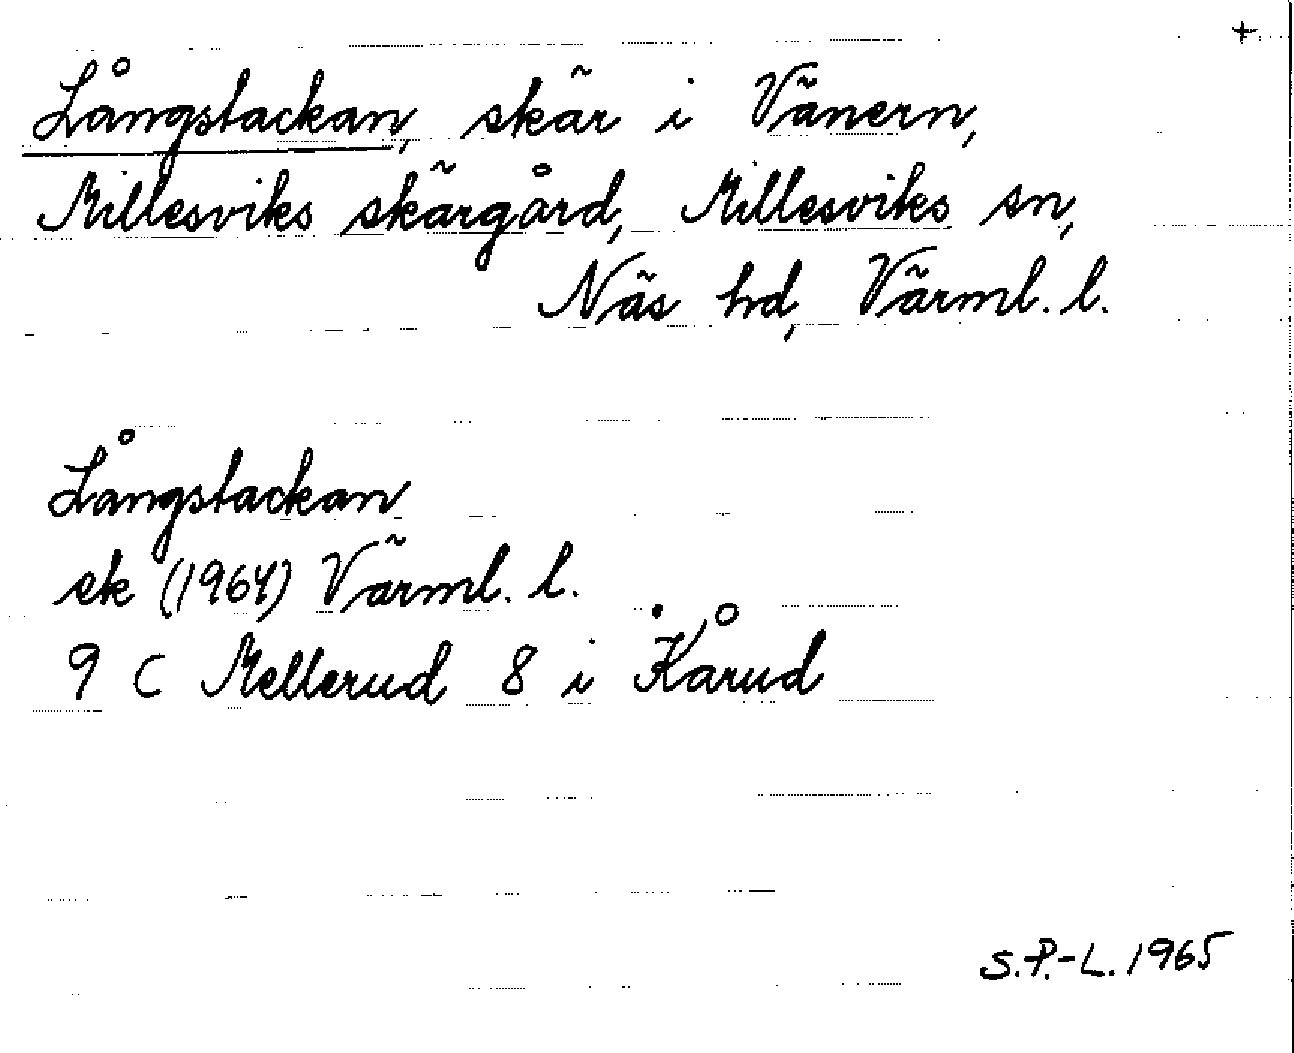 +
Långstackan, skär i Vänern,
Millesviks skärgård, Millesviks sn,
Näs hd, Värml. l.
Långstackan
ek (1964) Värml. l.
9 C Mellerud 8 i Kårud
S.P.-L. 1965